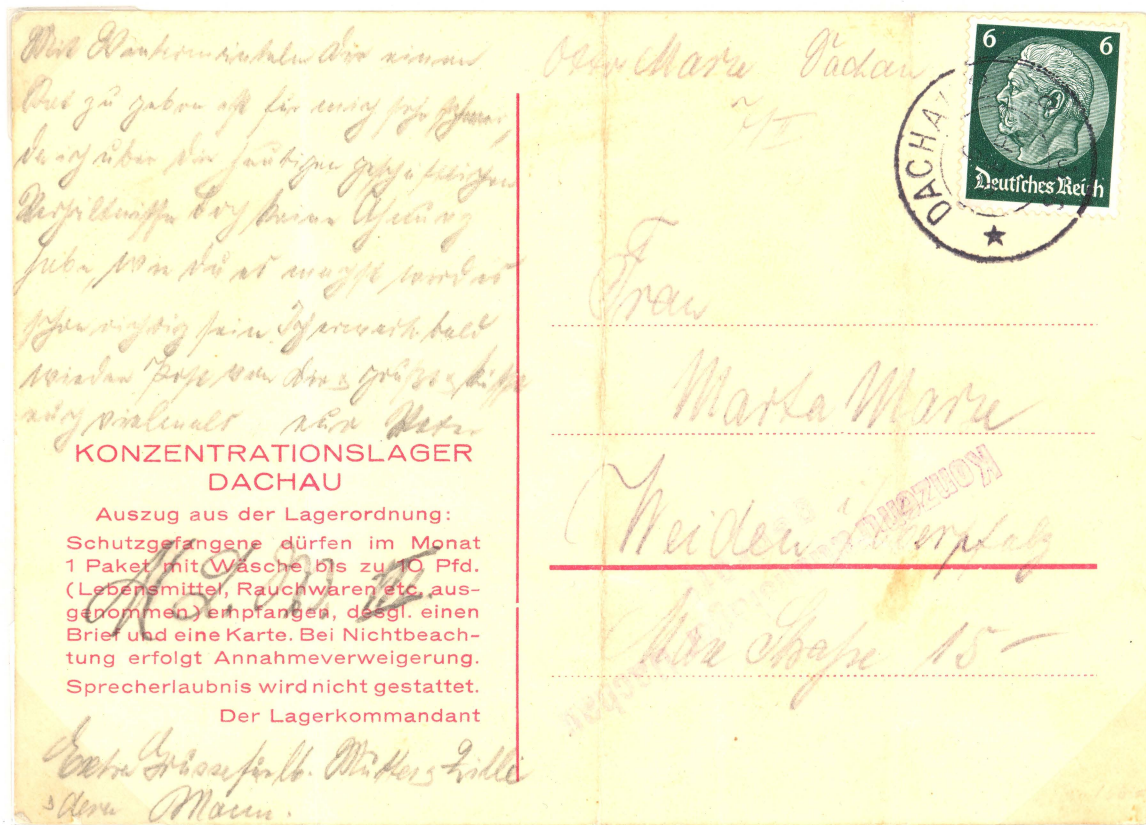 Mit Wintermänteln Dir einen
Rat zu geben ist für mich sehr schwer,
da ich über die heutigen geschäftlichen
Verhältnisse doch keine Ahnung
habe, wie du es machst wird es
schon richtig sein. Ich erwarte bald
wieder Post von Dir & grüße & küsse
euch vielmals euer Vater
KONZENTRATIONSLAGER
DACHAU
Auszug aus der Lagerordnung:
Schutzgefangene dürfen im Monat
1 Paket mit Wäsche bis zu 10 Pfd.
(Lebensmittel, Rauchwaren etc. aus-
genommen) empfangen, desgl. einen
Brief und eine Karte. Bei Nichtbeach-
tung erfolgt Annahmeverweigerung.
Sprecherlaubnis wird nicht gestattet.
Der Lagerkommandant
Extra Grüsse für lb. Mutter & Lilli
& deren Mann.
Otto Marx Dachau
7/II
6 6
Deutsches Reich
DACHAU
Frau
Marta Marx
Weiden Oberpfalz
Max Straße 15